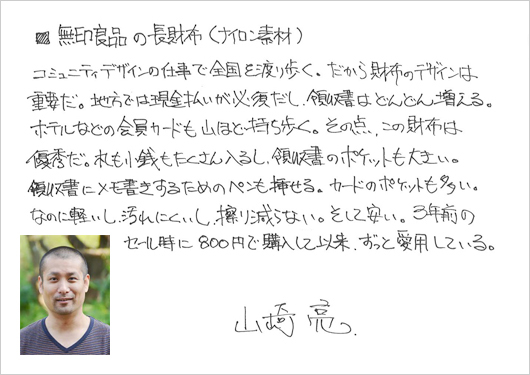 ▨ 無印良品の長財布（ナイロン素材）
コミュニティデザインの仕事で全国を渡り歩く。だから財布のデザインは
重要だ。地方では現金払いが必須だし、領収書はどんどん増える。
ホテルなどの会員カードも山ほど持ち歩く。その点、この財布は
優秀だ。札も小銭もたくさん入るし、領収書のポケットも大きい。
領収書にメモ書きするためのペンも挿せる。カードのポケットも多い。
なのに軽いし、汚れにくいし、擦り減らない。そして安い。3年前の
セール時に800円で購入して以来、ずっと愛用している。
山崎 亮.